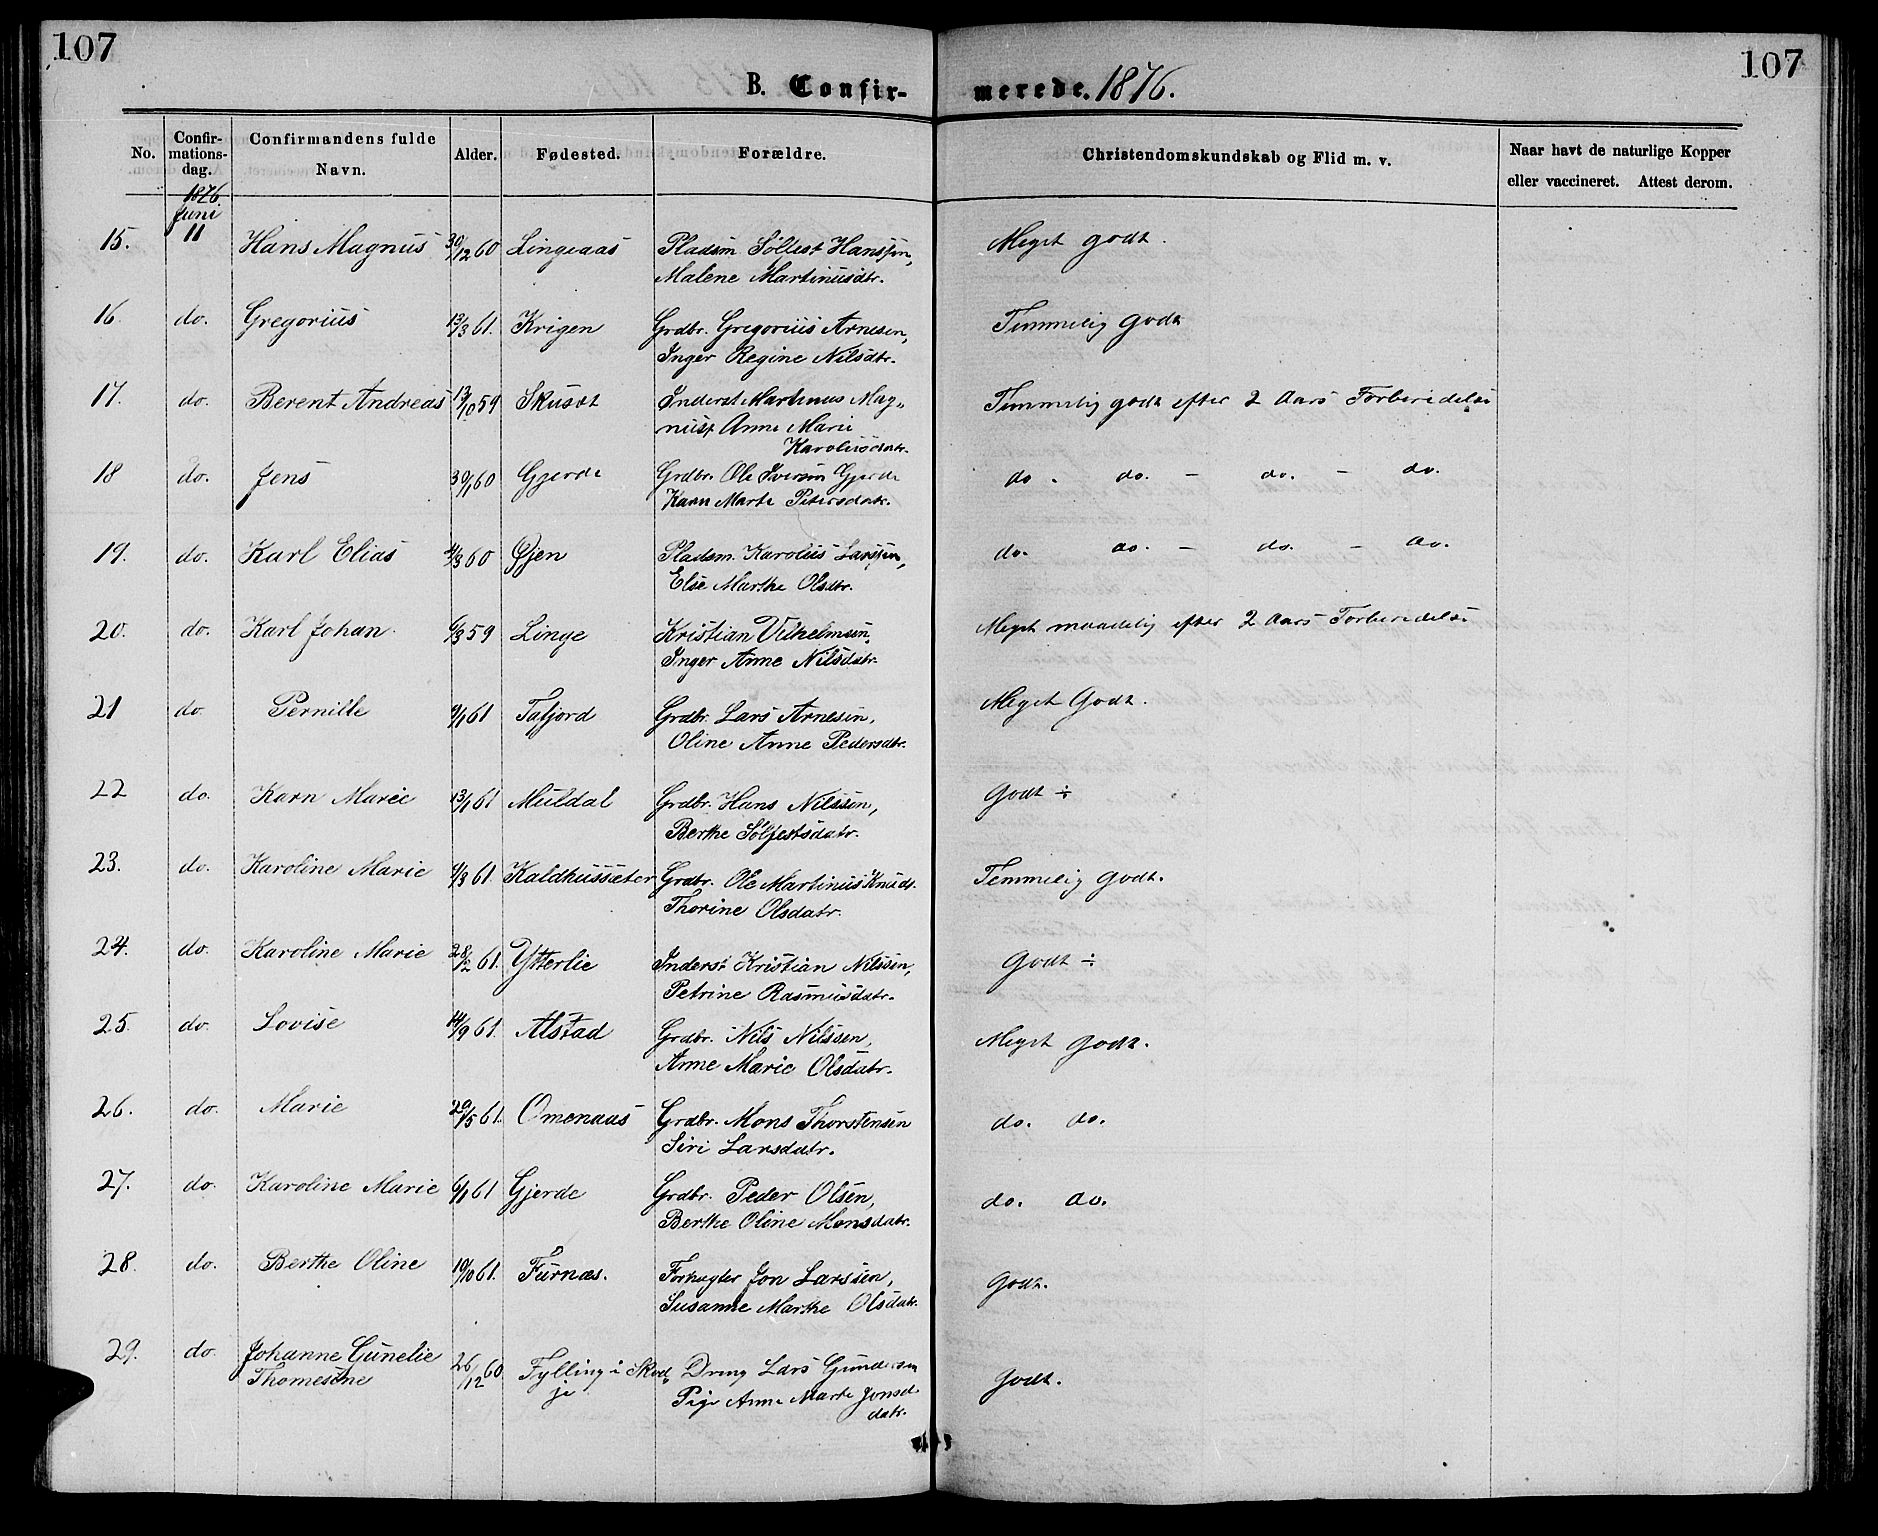 107
107
B. Confirmerede. 1876.
No. Confirmationsdag. Confirmandens fulde Navn. Alder. Fødested. Forældre. Christendomskundskab og Flid m. v. Naar havt de naturlige Kopper eller vaccineret. Attest derom.
1876
Juni
15. 11 Hans Magnus 30/12 60 Lingeaas Pladsm Sølfest Hanssen, Meget godt.
Malene Martinusdtr.
16. do. Gregorius 13/3 61. Krigen Grdbr. Gregorius Arnesen, Temmelig godt
Inger Regine Nilsdtr.
17. do. Berent Andreas 13/10 59 Skuset Inderst Martinus Mag„ Temmelig godt efter 2 Aars Forberedelse
nus. Anne Marie
Karolusdatr.
18 do. Jens 30/1 60 Gjerde Grdbr. Ole Iversen Gjerde do. do. - do. - do.
Karn Marte Petersdatr.
19. do. Karl Elias /3 60 Øjen Pladsm. Karolus Larssen, do. do. - do. - do.
Else Marthe Olsdtr.
20. do. Karl Johan. 6/3 59 Linge Kristian Vilhelmsen, Meget maadelig efter 2 Aars Forberedelse
Inger Anne Nilsdatr.
21 do. Pernille /1 61 Tafjord Grdbr. Lars Arnesen, Meget Godt.
Oline Anne Pedersdtr.
22 do. Karn Marie 13/1 61 Muldal Grdbr. Hans Nilssen, Godt ÷
Berthe Sølfestsdatr.
23. do. Karoline Marie /3 61. Kaldhussæter Grdbr. Ole Martinus Knuds. Temmelig godt.
Thorine Olsdatr.
24. do. Karoline Marie 28/2 61. Ytterlie Inderst Kristian Nilssen, Godt ÷
Petrine Rasmusdatr.
25. do. Lovise 14/9 61. Alstad Grdbr. Nils Nilssen, Meget godt.
Anne Marie Olsdatr.
26. do. Marie 29/5 61. Omenaas Grdbr. Mons Thorstensen do. do.
Siri Larsdatr.
27. do. Karoline Marie 6/1 61 Gjerde Grdbr. Peder Olsen, do. do.
Berthe Oline Monsdatr.
28. do. Berthe Oline 19/10 61. Furnæs. Forhugter Jon Larssen, Godt.
Susanne Marthe Olsdatr.
29. do. Johanne Gunelie 26/12 60 Fylling i Skod„ Dreng Lars Gundersen Godt.
Thomesine je Pige Anne Marte Jonsd
datr.